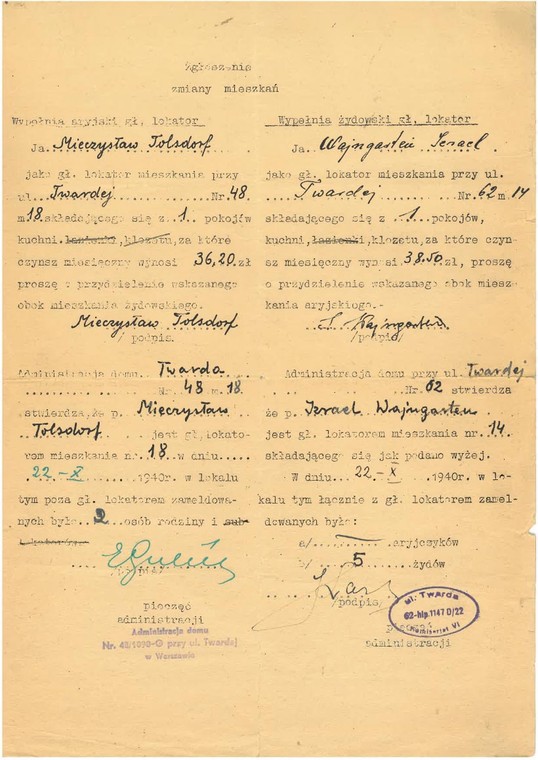 Zgłoszenie
zmiany mieszkań
Wypełnia aryjski gł. lokator
Ja Mieczysław Tolsdorf
jako gł. lokator mieszkania przy
ul. Twardej Nr. 48
m 18 składającego się z 1 pokojów
kuchni, łazienki, klozetu, za które
czynsz miesięczny wynosi 36,20 zł
proszę o przydzielenie wskazanego
obok mieszkania żydowskiego.
Mieczysław Tolsdorf
/podpis/
Administracja domu Twarda
Nr. 48 m. 18
stwierdza, że p. Mieczysław
Tolsdorf jest gł. lokato-
rem mieszkania nr. 18 w dniu
22 - X 1940r. w lokalu
tym poza gł. lokatorem zameldowa-
nych było 2 osób rodziny i sub-
lokatorów
pieczęć
administracji
Administracja domu
przy ul. Twardej
w Warszawie
Wypełnia żydowski gł. lokator
Ja Wajngarten Israel
jako gł. lokator mieszkania przy ul.
Twardej Nr. 62 m 14
składającego się z 1 pokojów,
kuchni, łazienki, klozetu, za które czyn-
sz miesięczny wynosi 38.50 zł, proszę
o przydzielenie wskazanego obok miesz-
kania aryjskiego.-
I. Wajngarten
/podpis/
Administracja domu przy ul. Twardej
Nr. 62 stwierdza
że p. Izrael Wajngarten
jest gł. lokatorem mieszkania nr. 14
składającego się jak podano wyżej.
W dniu 22 - X 1940r. w lo-
kalu tym łącznie z gł. lokatorem zamel-
dowanych było:
a/ — aryjczyków
b/ 5 żydów
/podpis/
ul. Twarda
62-hip. 1147 D/22
Komisariat VI
pieczęć
administracji